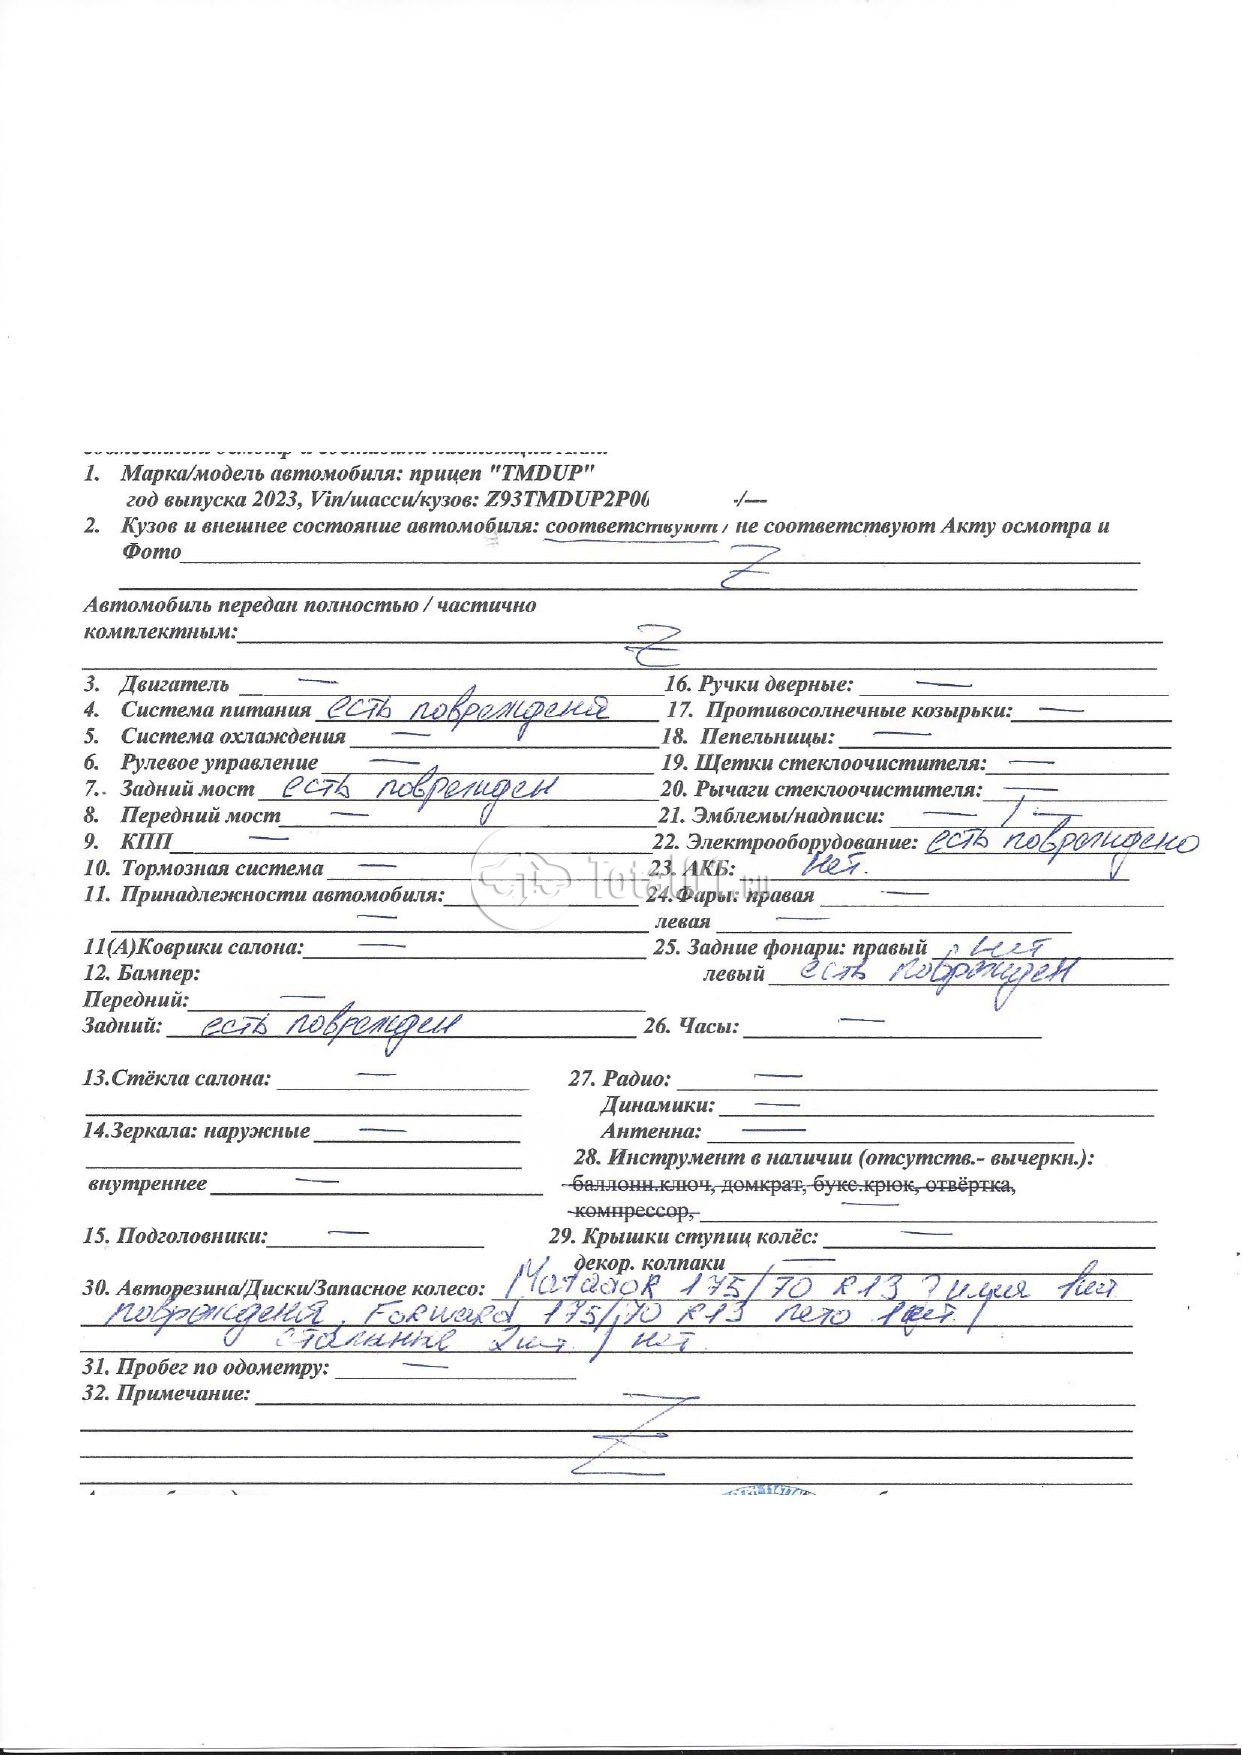 1. Марка/модель автомобиля: прицеп "TMDUP"
год выпуска 2023, Vin/шасси/кузов: Z93TMDUP2P00 -/—
2. Кузов и внешнее состояние автомобиля: соответствуют / не соответствуют Акту осмотра и
Фото Z
Автомобиль передан полностью / частично
комплектным: Z
3. Двигатель —
4. Система питания есть поврежденя
5. Система охлаждения —
6. Рулевое управление —
7. Задний мост есть поврежден
8. Передний мост —
9. КПП —
10. Тормозная система —
11. Принадлежности автомобиля:
—
11(А)Коврики салона: —
12. Бампер:
Передний: —
Задний: есть поврежден
16. Ручки дверные: —
17. Противосолнечные козырьки: —
18. Пепельницы: —
19. Щетки стеклоочистителя: —
20. Рычаги стеклоочистителя: —
21. Эмблемы/надписи: — / —
22. Электрооборудование: есть повреждено
23. АКБ: нет.
24. Фары: правая —
левая —
25. Задние фонари: правый нет
левый есть поврежден
26. Часы: —
13.Стёкла салона: —
14.Зеркала: наружные —
внутреннее —
15. Подголовники: —
27. Радио: —
Динамики: —
Антенна: —
28. Инструмент в наличии (отсутств.- вычеркн.):
баллонн.ключ, домкрат, букс.крюк, отвёртка,
компрессор, —
29. Крышки ступиц колёс: —
декор. колпаки —
30. Авторезина/Диски/Запасное колесо: Matador 175/70 R13 1шт
поврежденя, Forward 175/70 R13 лето 1шт. /
стальные 2шт. / нет.
31. Пробег по одометру: —
32. Примечание: Z
TotalOT.ru